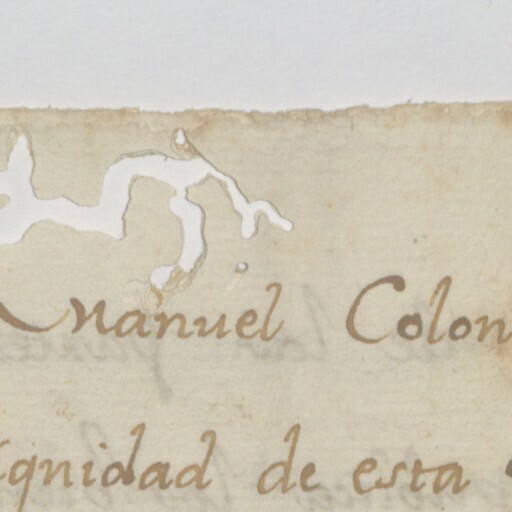 Manuel Colon
ignidad de esta